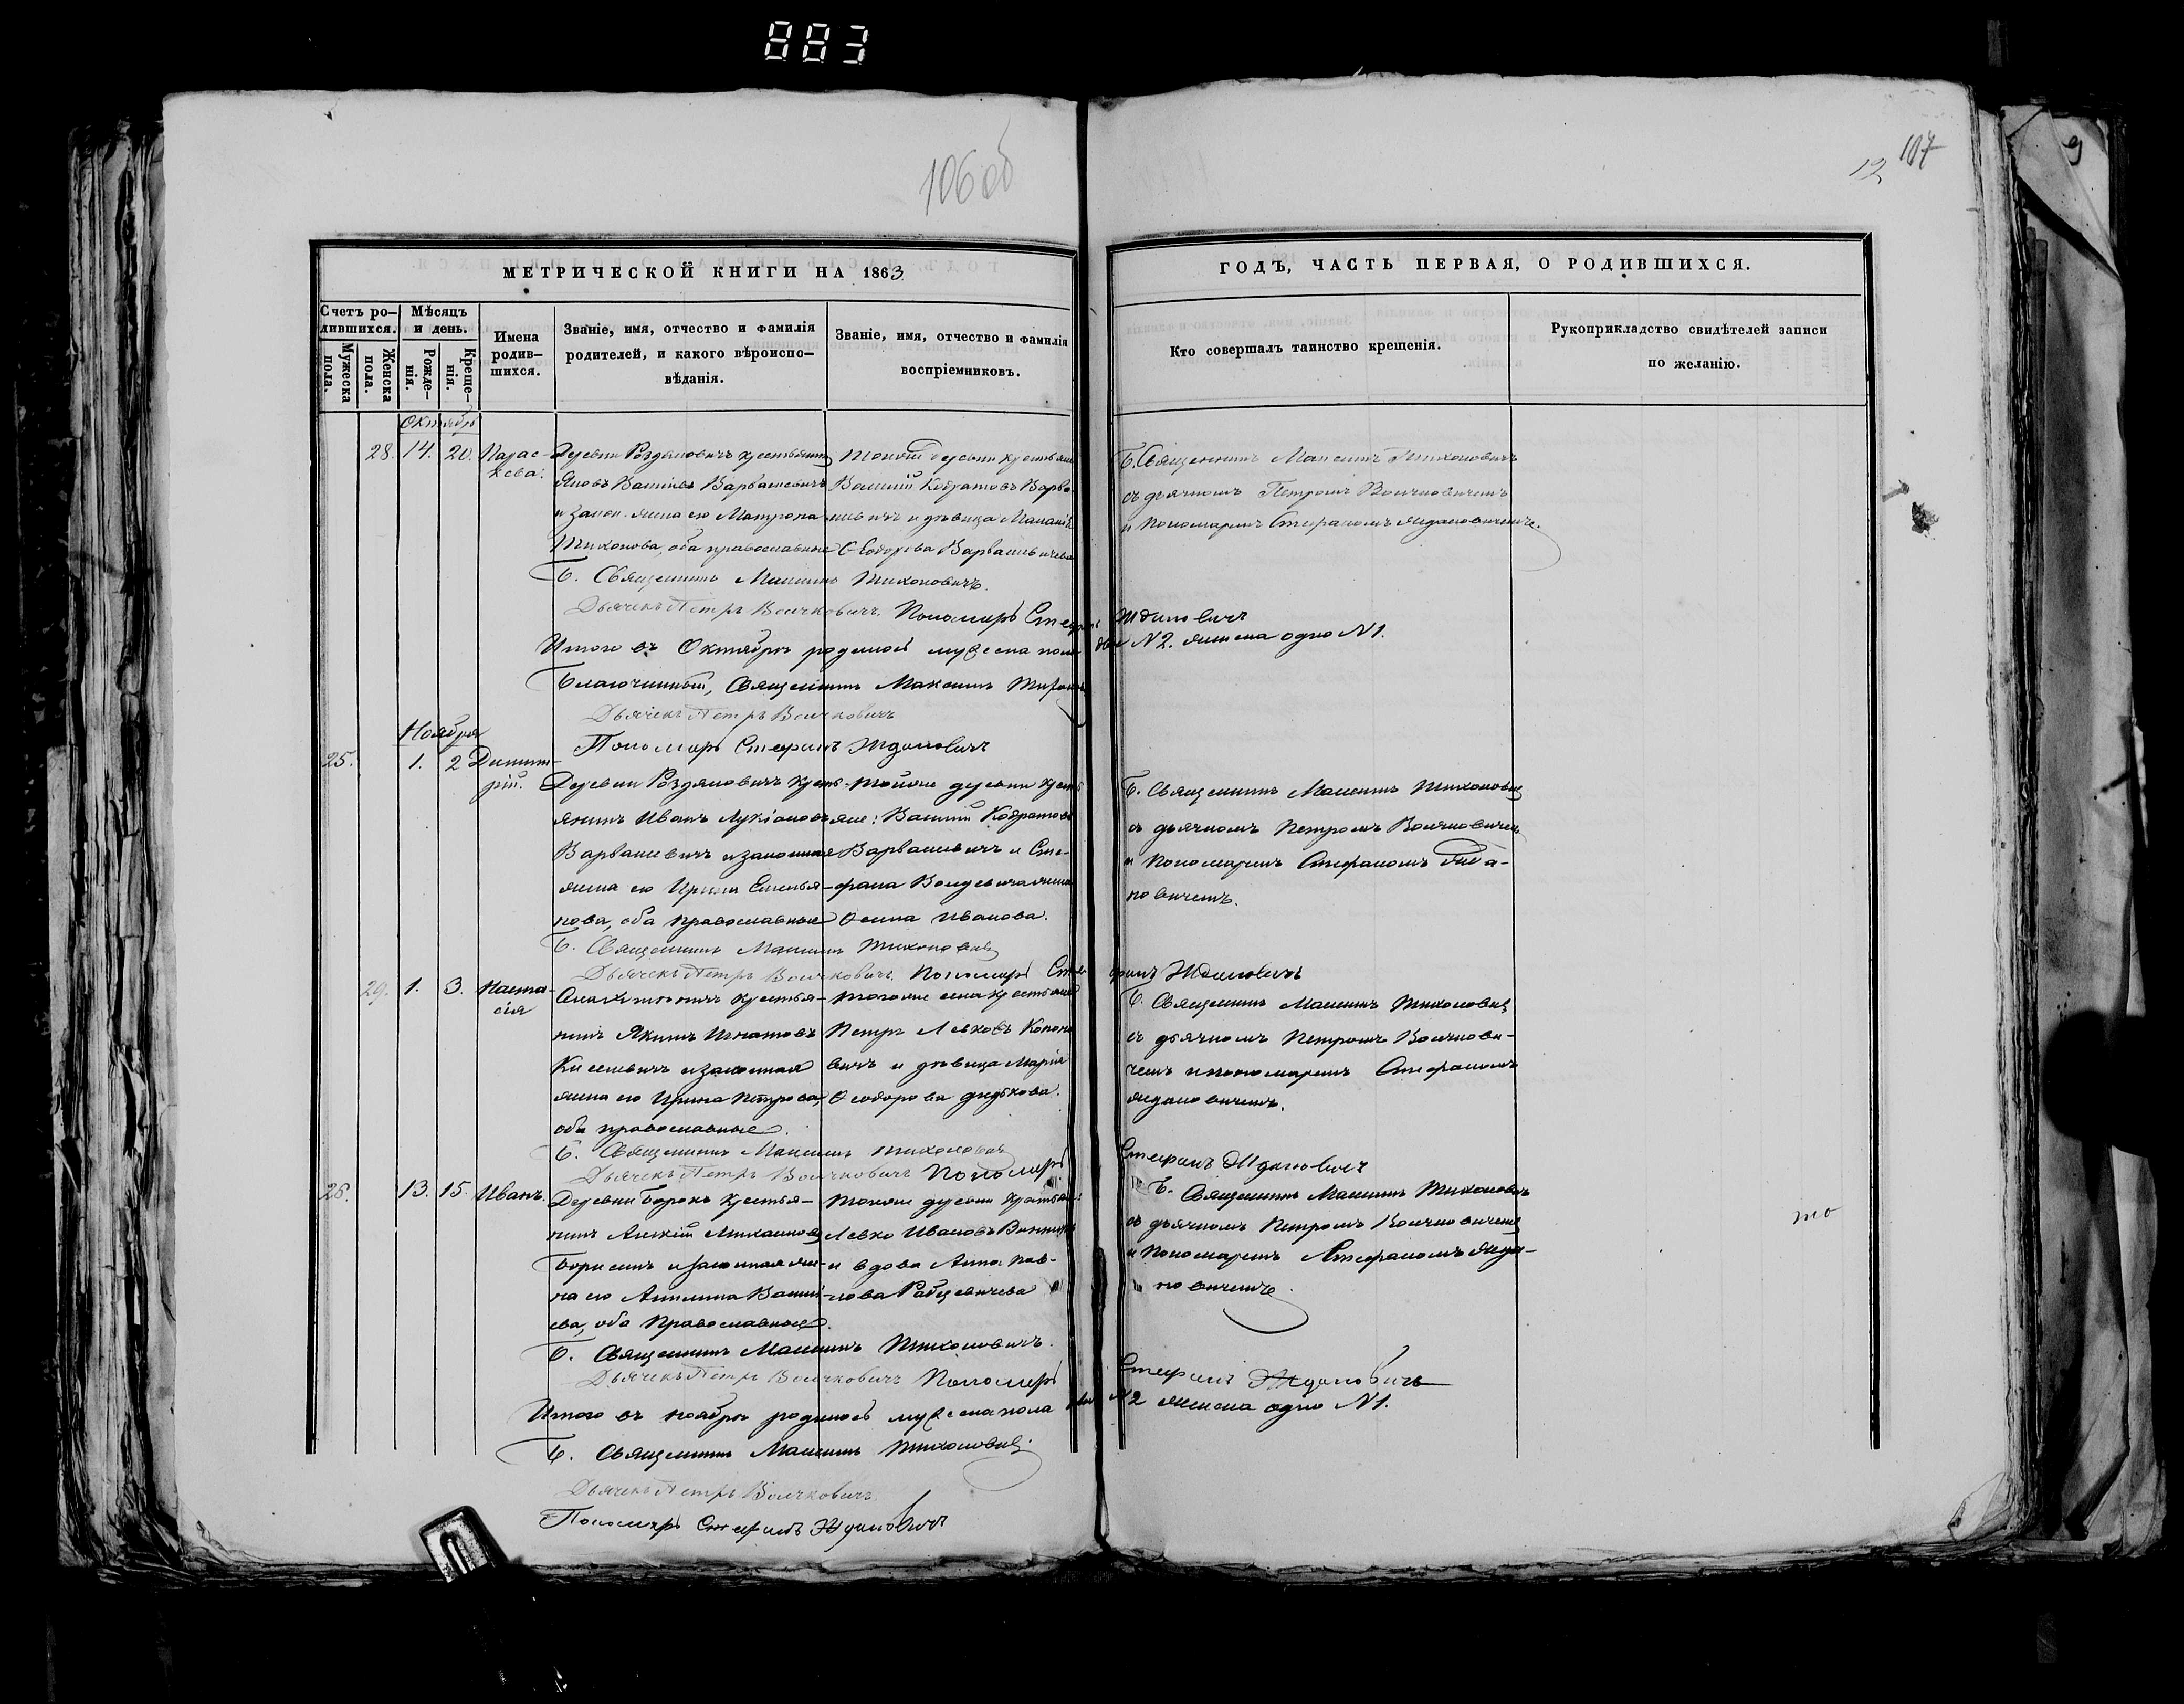 883
106 об
12 107
МЕТРИЧЕСКОЙ КНИГИ НА 1863
ГОДЪ, ЧАСТЬ ПЕРВАЯ, О РОДИВШИХСЯ.
Счетъ ро-
дившихся.
Мужеска
пола.
Женска
пола.
Мѣсяцъ
и день.
Рожде-
нія.
Креще-
нія.
Имена
родив-
шихся.
Званіе, имя, отчество и фамилія
родителей, и какого вѣроиспо-
вѣданія.
Званіе, имя, отчество и фамилія
воспріемниковъ.
Кто совершалъ таинство крещенія.
Рукоприкладство свидѣтелей записи
по желанію.
Октябрь
28. 14. 20. Парас-
кева.
Деревни Роздяловичъ крестьянинъ
Яковъ Варвашевичъ
и закон. жена его Матрона
Тихонова, оба православные
деревни крестьяне
и дѣвица
Ѳеодорова Варвашевичева
Б. Священникъ Максимъ Тихоновичъ
съ дьячкомъ Петромъ Воличковичемъ
и пономаремъ Стефаномъ Ждановичемъ.
Б. Священникъ Максимъ Тихоновичъ.
Дьячекъ Петръ Воличковичъ. Пономарь Стефанъ Ждановичъ
Итого въ Октябрѣ родилось мужеска пола два N 2. женска одно N 1.
Благочинный, Священникъ Максимъ
Дьячекъ Петръ Воличковичъ
Пономарь Стефанъ Ждановичъ
Ноября
25. 1. 2 Димит-
рій.
Деревни Роздяловичъ кресть-
янинъ Иванъ Лукіановъ
Варвашевичъ и законная
жена его Ирина Емелья-
нова, оба православные
тойже деревни кресть
яне: Василій Кодратовъ
Варвашевичъ и Сте-
фана жена
Иванова.
Б. Священникъ Максимъ Тихоновичъ
съ дьячкомъ Петромъ Воличковичемъ
и пономаремъ Стефаномъ Жда-
новичемъ.
Б. Священникъ Максимъ Тихоновичъ
Дьячекъ Петръ Воличковичъ. Пономарь Стефанъ Ждановичъ
29. 1. 3. Наста-
сія
крестья-
нинъ Якимъ Игнатовъ
и законная
жена его Ирина Петрова,
оба православные.
тогоже села крестьяне
Петръ Левковъ Кононо
вичъ и дѣвица Марія
Ѳеодорова
Б. Священникъ Максимъ Тихоновичъ
съ дьячкомъ Петромъ Воличкови-
чемъ и пономаремъ Стефаномъ
Ждановичемъ.
Б. Священникъ Максимъ Тихоновичъ
Дьячекъ Петръ Воличковичъ Пономарь Стефанъ Ждановичъ
26. 13. 15. Иванъ.
Деревни Борокъ крестья-
нинъ Алексій
и законная же-
на его Акилина Василі-
ева, оба православные.
тойже деревни крестьяне:
Левко Ивановъ
и вдова Анна Пав-
лова
Б. Священникъ Максимъ Тихоновичъ
съ дьячкомъ Петромъ Воличковичемъ
и пономаремъ Стефаномъ Жда-
новичемъ.
то
Б. Священникъ Максимъ Тихоновичъ.
Дьячекъ Петръ Воличковичъ Пономарь Стефанъ Ждановичъ
Итого въ ноябрѣ родилось мужеска пола два N 2 женска одно N 1.
Б. Священникъ Максимъ Тихоновичъ.
Дьячекъ Петръ Воличковичъ
Пономарь Стефанъ Ждановичъ